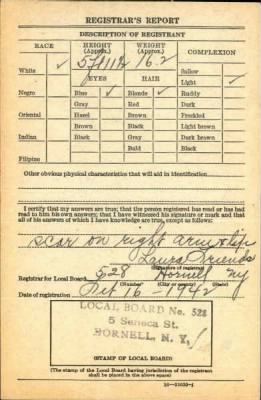 REGISTRAR'S REPORT
DESCRIPTION OF REGISTRANT
RACE HEIGHT (Approx.) WEIGHT (Approx.) COMPLEXION
White ✓ 5 ft 11½ 162 Sallow
EYES HAIR Light ✓
Negro Blue ✓ Blonde ✓ Ruddy
Gray Red Dark
Oriental Hazel Brown Freckled
Brown Black Light brown
Indian Black Gray Dark brown
Bald Black
Filipino
Other obvious physical characteristics that will aid in identification
I certify that my answers are true; that the person registered has read or has had
read to him his own answers; that I have witnessed his signature or mark and that
all of his answers of which I have knowledge are true, except as follows:
scar on right arm & lip
Laura
(Signature of registrar)
Registrar for Local Board 528 Hornell NY
(Number) (City or county) (State)
Date of registration 16 - 1942
LOCAL BOARD No. 528
5 Seneca St.
HORNELL, N. Y.
(STAMP OF LOCAL BOARD)
(The stamp of the Local Board having jurisdiction of the registrant
shall be placed in the above space)